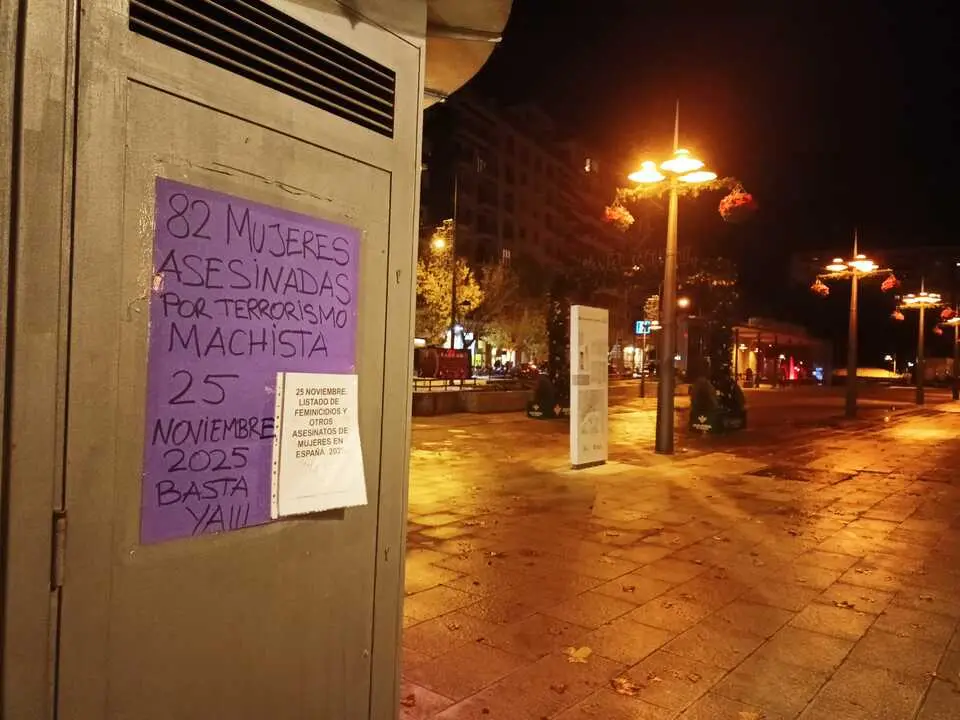 82 MUJERES
ASESINADAS
POR TERRORISMO
MACHISTA
25
NOVIEMBRE
2025
BASTA
YA!!!
25 NOVIEMBRE.
LISTADO DE
FEMINICIDIOS Y
OTROS
ASESINATOS DE
MUJERES EN
ESPAÑA